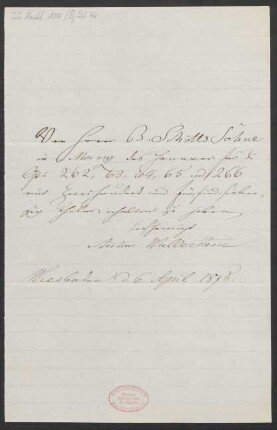 Von Herrn B. Schotts Söhne
in Mainz das Honorar für die
Op. 262, 63, 64, 65 und 266
mit Zweihundert und fünfundsieben-
zig Thaler erhalten zu haben
bescheinigt
Anton Wallerstein
Wiesbaden d. 6 April 1873.